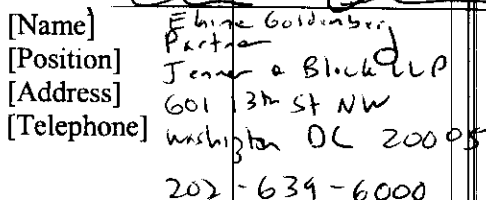 [Name] Elaine Goldenberg
[Position] Partner
Jenner & Block LLP
[Address] 601 13th St NW
[Telephone] Washington DC 20005
202-639-6000